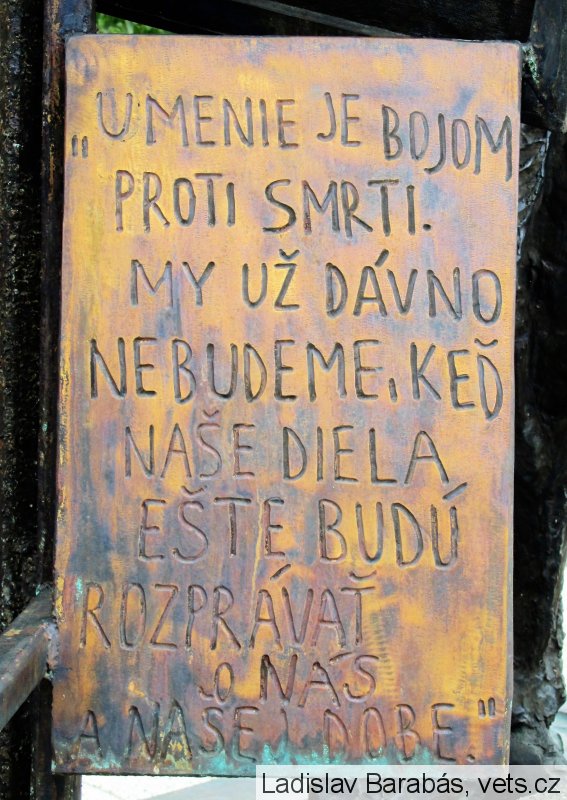 „UMENIE JE BOJOM
PROTI SMRTI.
MY UŽ DÁVNO
NEBUDEME, KEĎ
NAŠE DIELA
EŠTE BUDÚ
ROZPRÁVAŤ
O NÁS
A NAŠEJ DOBE."
Ladislav Barabás, vets.cz